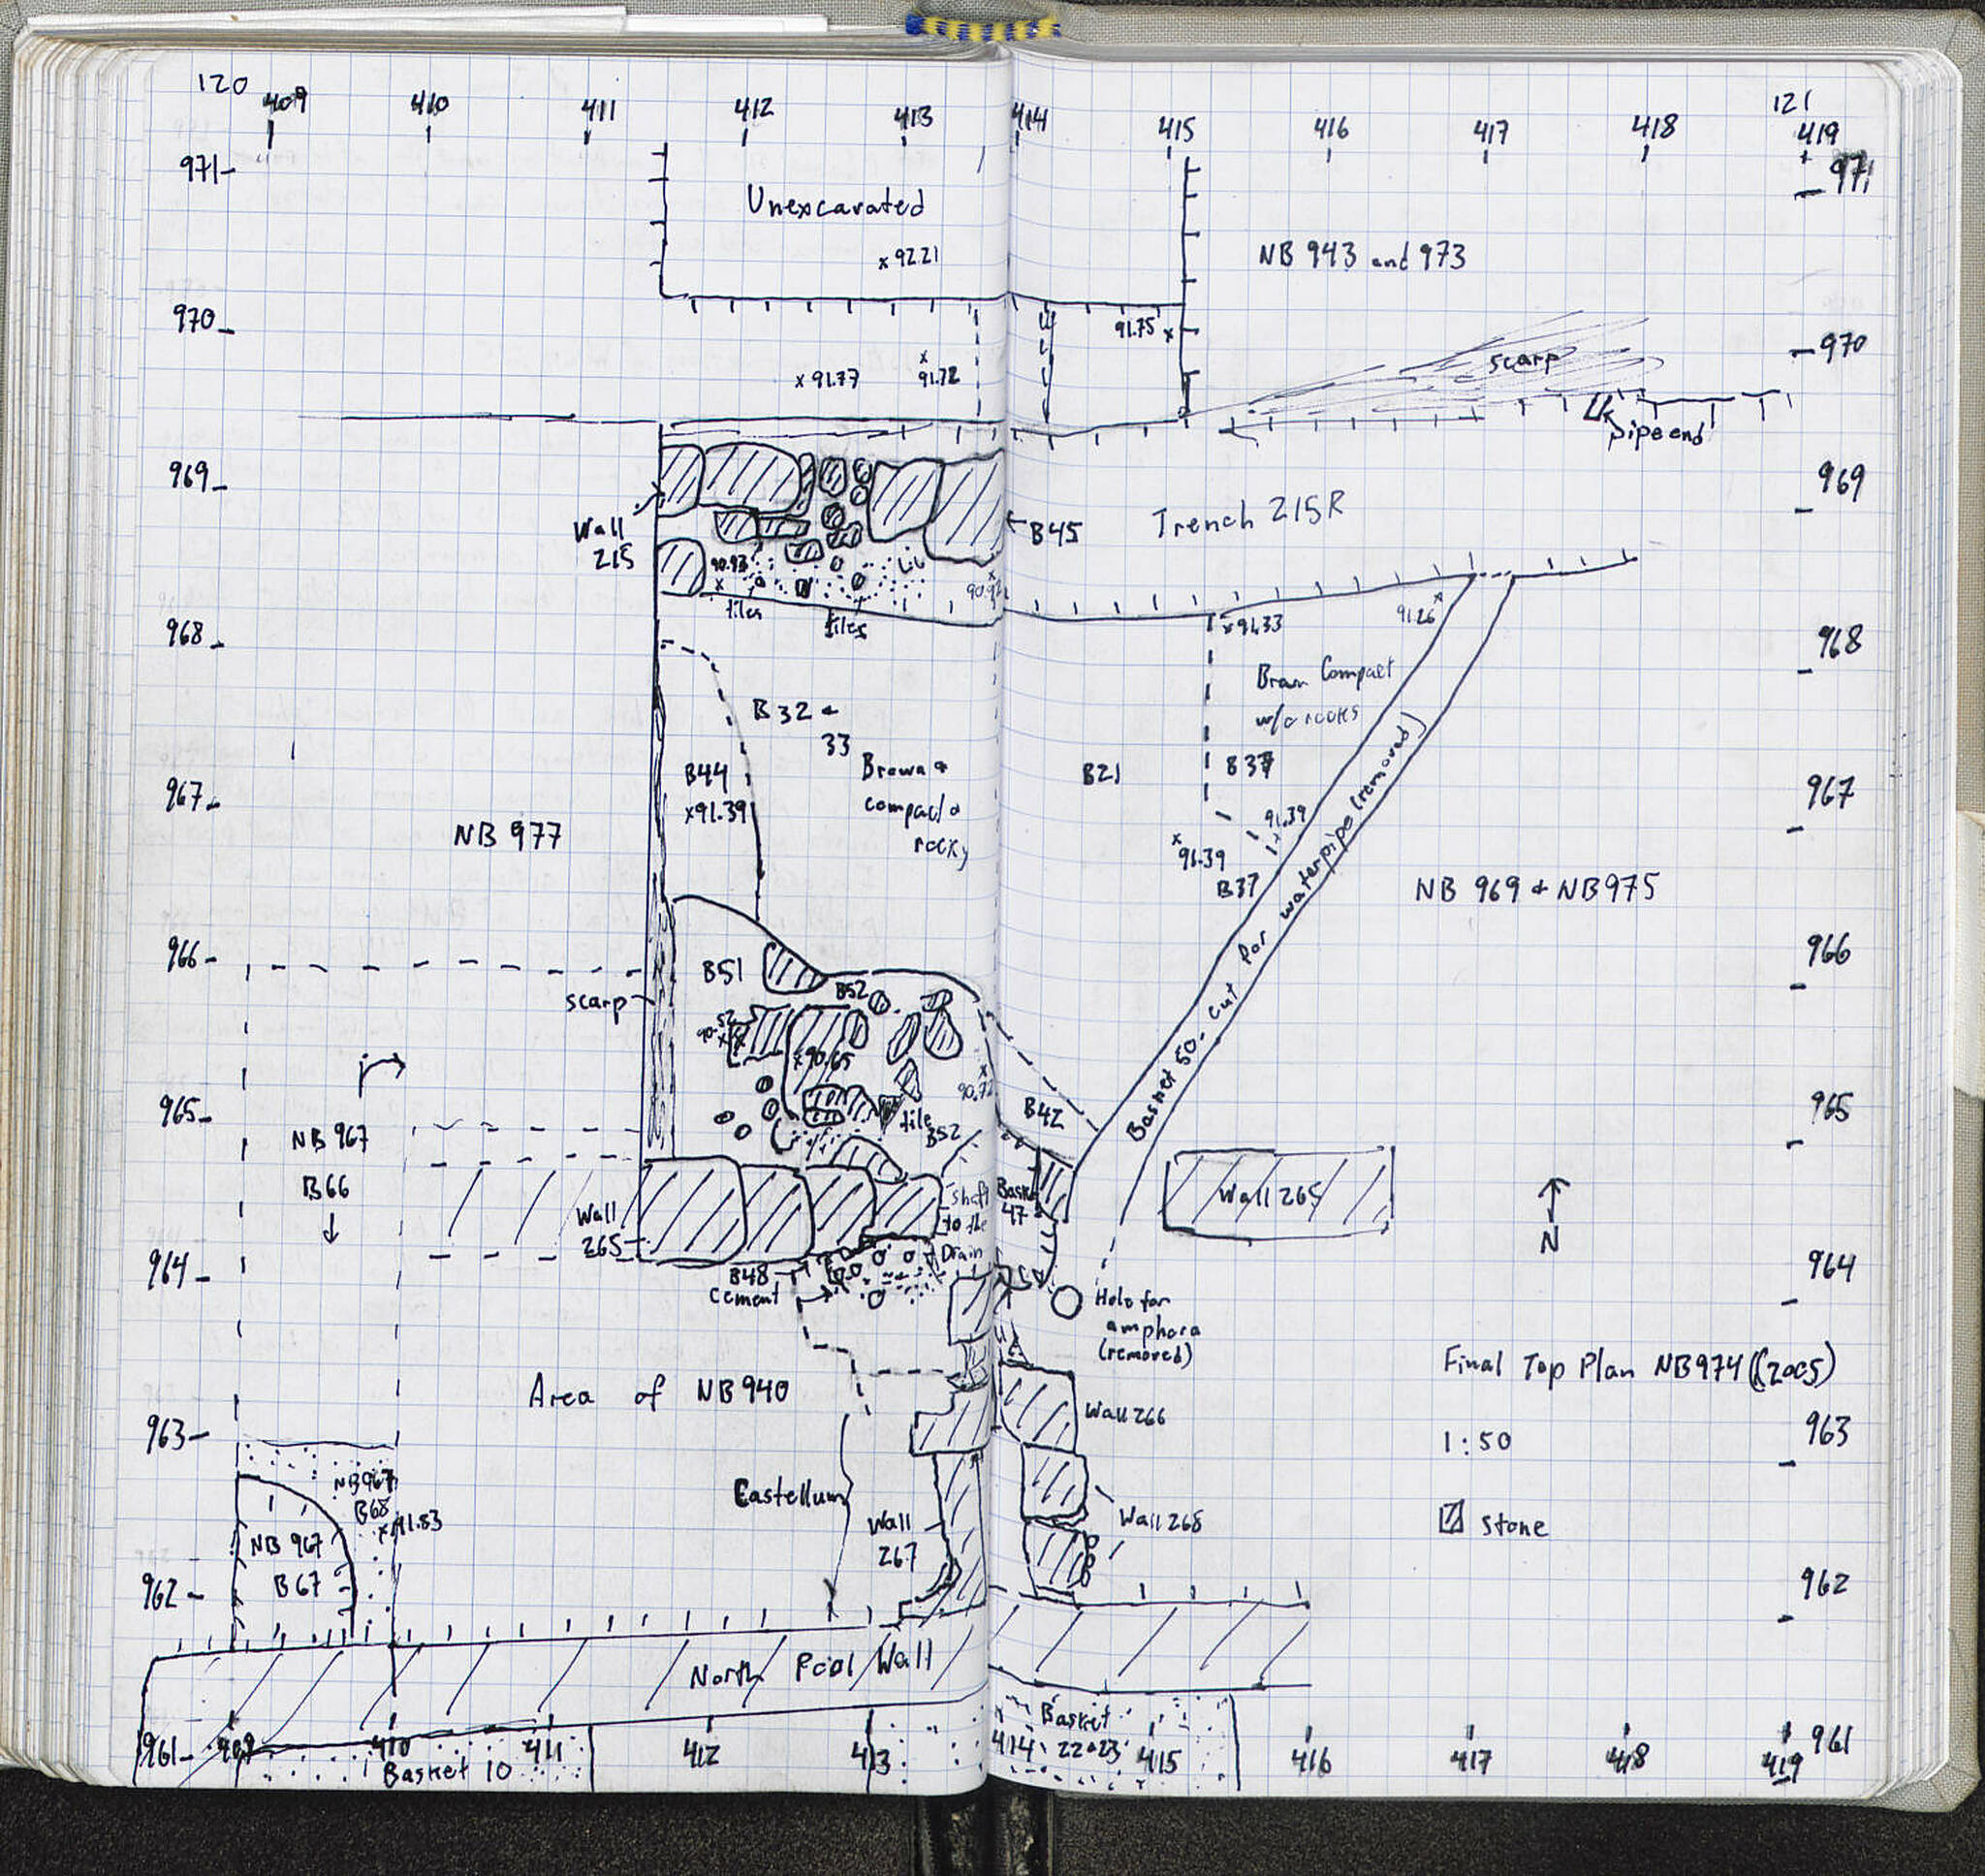 120
121
409 410 411 412 413 414 415 416 417 418 419
971
971
Unexcavated
x 92.21
NB 943 and 973
970
970
91.75 x
x 91.77
x
91.72
scarp
pipe end
969
969
Wall
215
B45
Trench 215R
90.93
x
tiles
tiles
x
968
968
x 91.33
91.26 x
B32 +
33
Brown Compact
w/o rocks
B44
x91.39
Brown +
compact +
rocky
B21
B37
967
967
NB 977
91.39
x
x
91.39
B37
Basket 50 - cut for waterpipe (removed)
NB 969 + NB 975
966
966
B51
B52
scarp
90.52
x
x90.65
x
965
965
tile
B52
B42
NB 967
B66
Wall
265
shaft
to the
Drain
47
Wall 265
N
964
964
B48
cement
Hole for
amphora
(removed)
Area of NB 940
Final Top Plan NB974 (2005)
963
963
Wall 266
1:50
NB967
B68
x 91.83
Castellum
Wall
267
Wall 268
stone
NB 967
B67
962
962
North Pool Wall
961
961
409 410 411 412 413 414 415 416 417 418 419
Basket
22+23
Basket 10